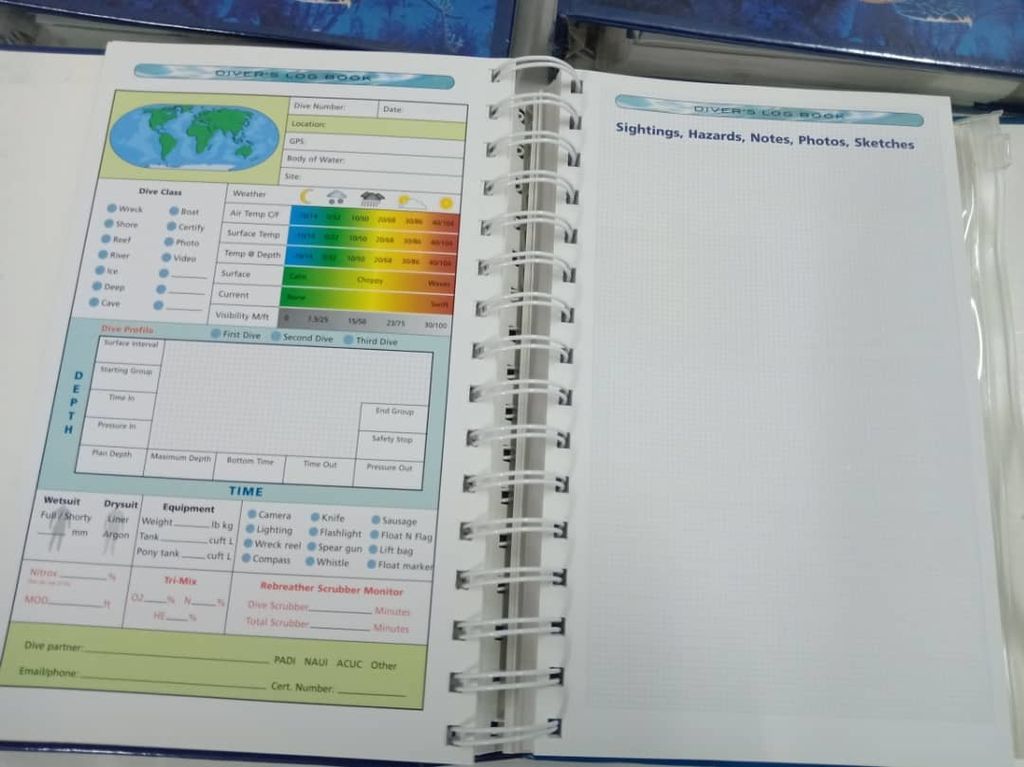 DIVER'S LOG BOOK
Dive Number: Date:
Location:
GPS:
Body of Water:
Site:
Dive Class
Wreck Boat
Shore Certify
Reef Photo
River Video
Ice
Deep
Cave
Weather
Air Temp C/F -10/14 0/32 10/50 20/68 30/86 40/104
Surface Temp -10/14 0/32 10/50 20/68 30/86 40/104
Temp @ Depth -10/14 0/32 10/50 20/68 30/86 40/104
Surface Calm Choppy Waves
Current None Swift
Visibility M/ft 0 7.5/25 15/50 23/75 30/100
Dive Profile First Dive Second Dive Third Dive
DEPTH
Surface Interval
Starting Group
Time In
Pressure In
Plan Depth Maximum Depth Bottom Time Time Out
End Group
Safety Stop
Pressure Out
TIME
Wetsuit Drysuit
Full / Shorty Liner
mm Argon
Equipment
Weight lb kg
Tank cuft L
Pony tank cuft L
Camera Knife Sausage
Lighting Flashlight Float N Flag
Wreck reel Spear gun Lift bag
Compass Whistle Float marker
Nitrox %
MOD ft
Tri-Mix
O2 % N %
HE %
Rebreather Scrubber Monitor
Dive Scrubber Minutes
Total Scrubber Minutes
Dive partner: PADI NAUI ACUC Other
Email/phone: Cert. Number:
DIVER'S LOG BOOK
Sightings, Hazards, Notes, Photos, Sketches